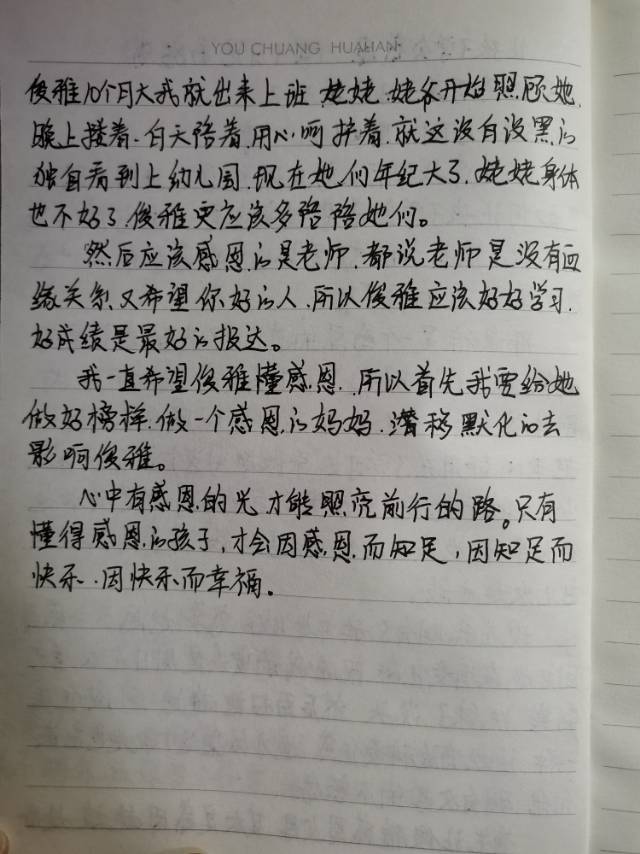 YOU CHUANG HUALIAN
俊雅10个月大我就出来上班.姥姥.姥爷开始照顾她.
晚上搂着.白天陪着.用心呵护着.就这没白没黑的
独自看到上幼儿园.现在她们年纪大了.姥姥身体
也不好了.俊雅更应该多陪陪她们。
然后应该感恩的是老师.都说老师是没有血
缘关系又希望你好的人.所以俊雅应该好好学习.
好成绩是最好的报达。
我一直希望俊雅懂感恩.所以首先我要给她
做好榜样.做一个感恩的妈妈.潜移默化的去
影响俊雅。
心中有感恩的光才能照亮前行的路。只有
懂得感恩的孩子,才会因感恩而知足,因知足而
快乐.因快乐而幸福。